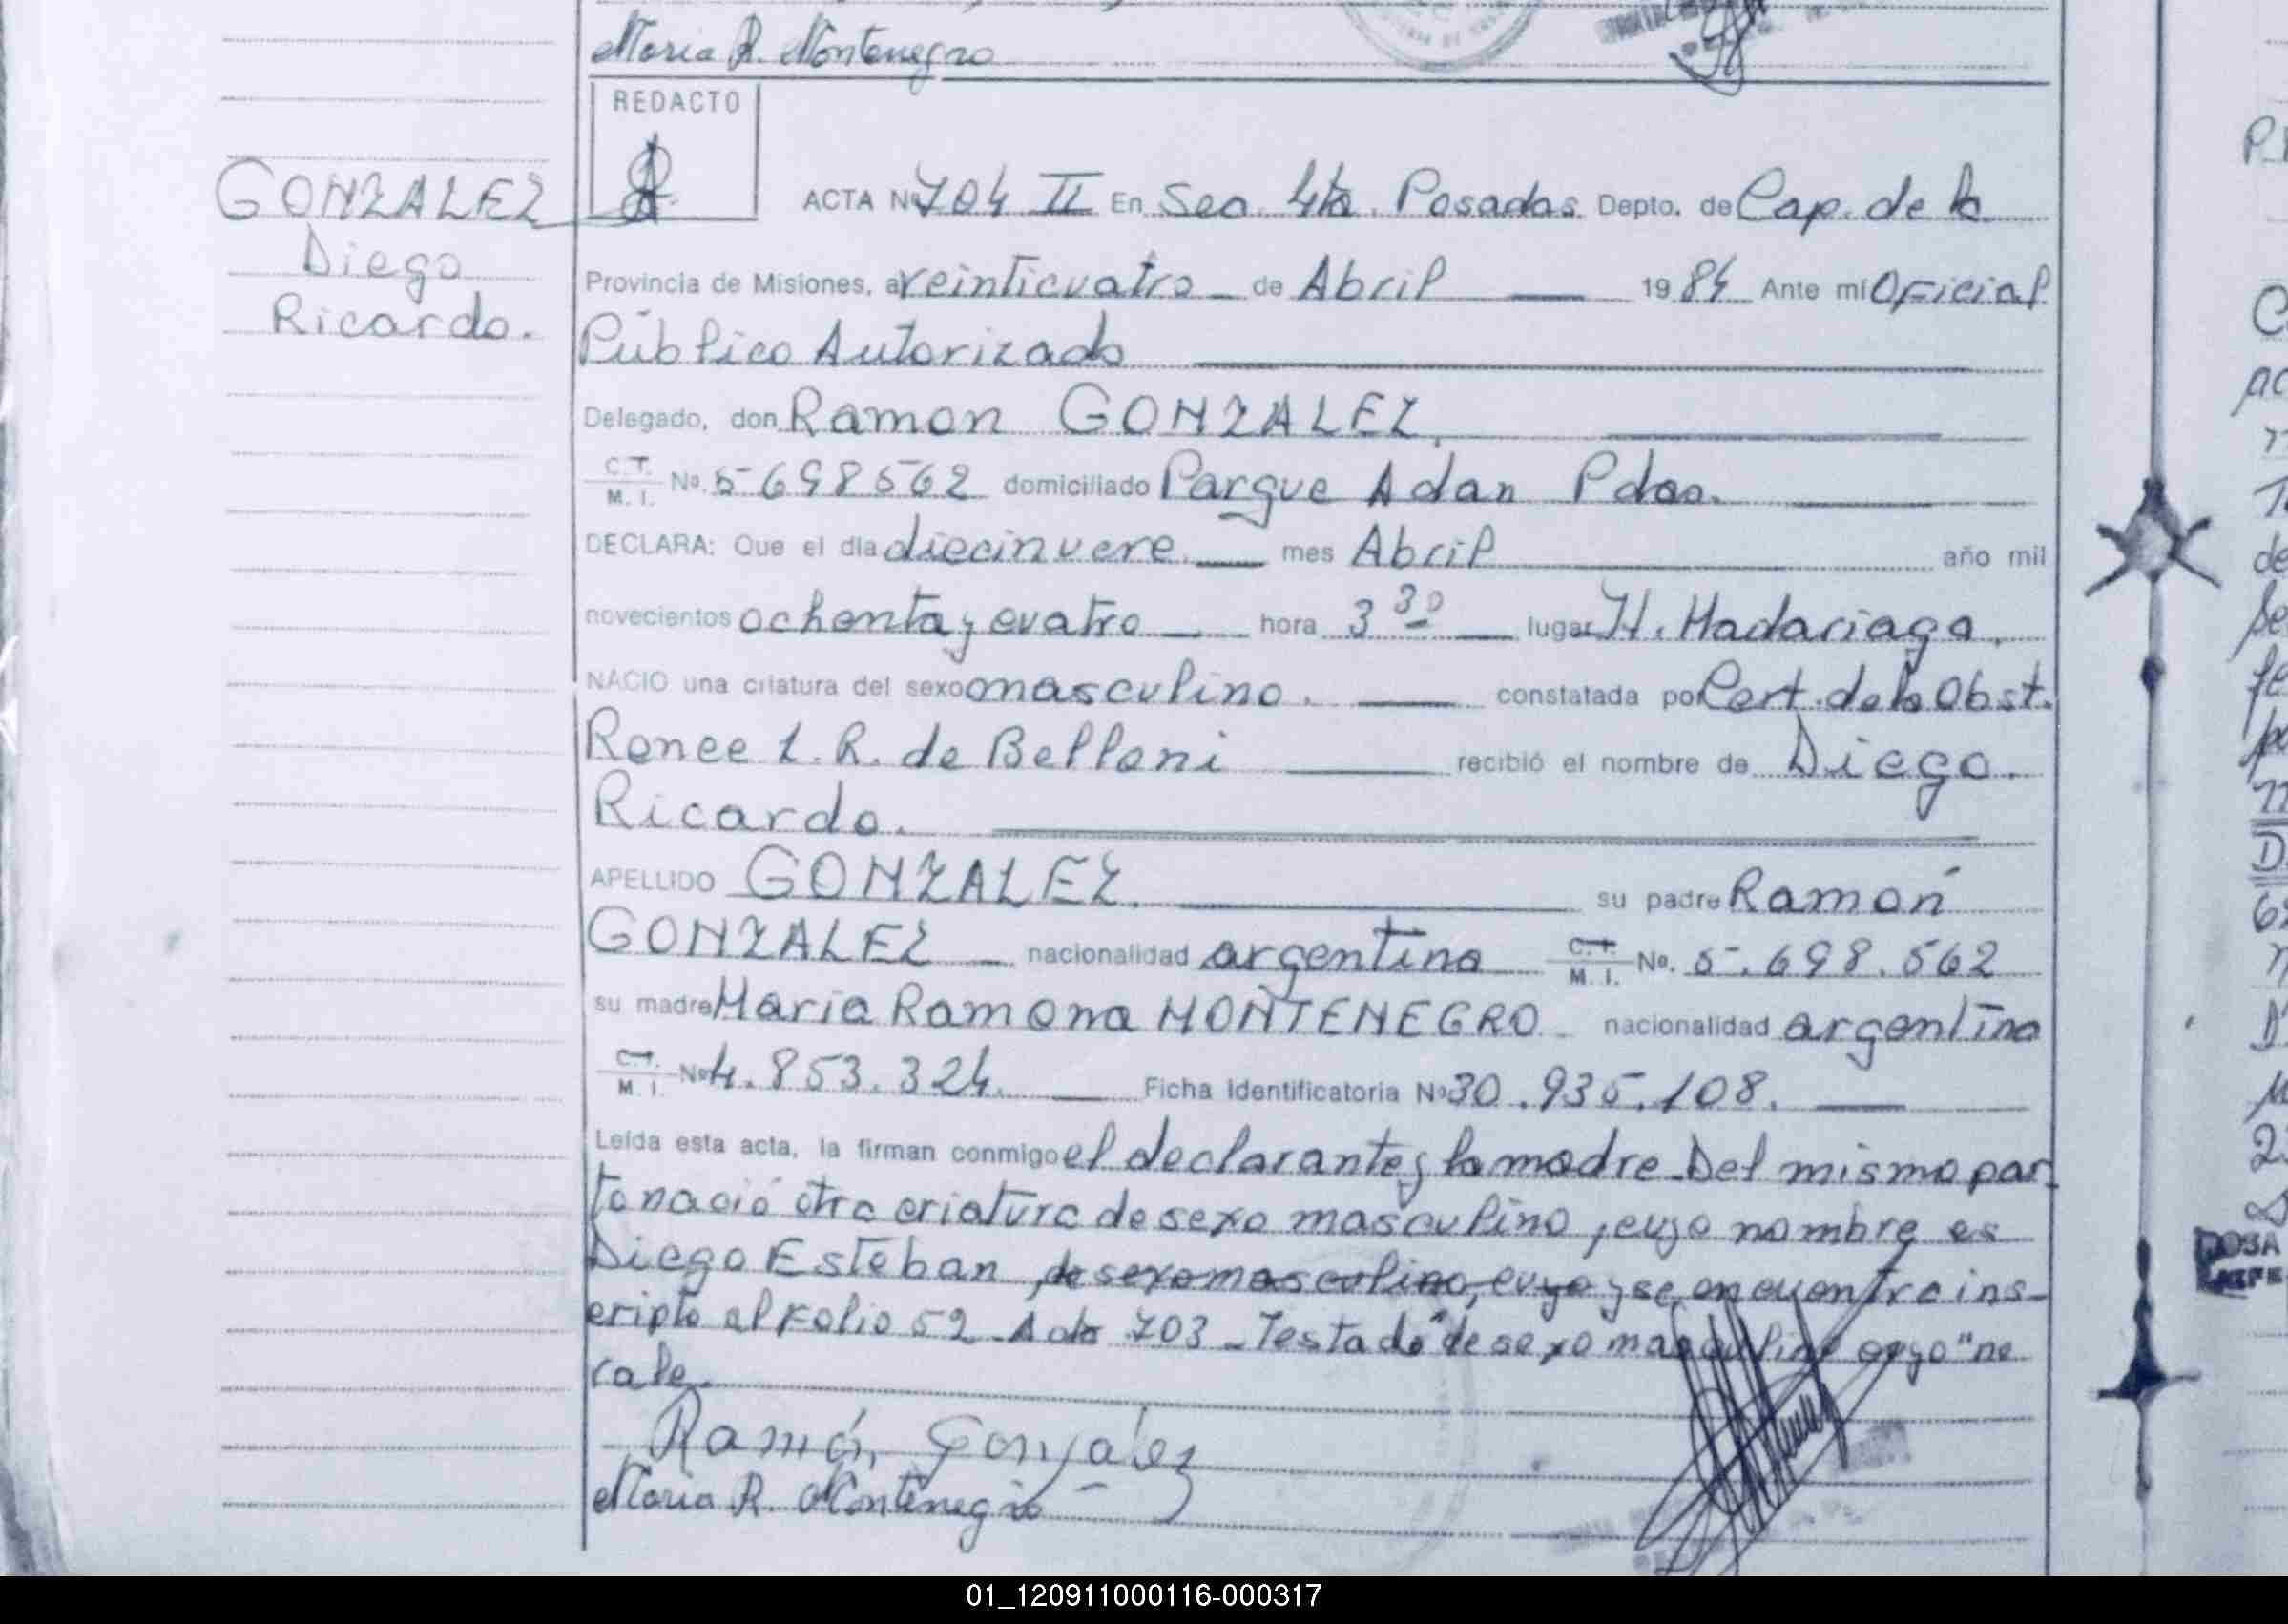 Maria R. Montenegro
REDACTO
GONZALEZ
Diego
Ricardo.
ACTA Nº 704 II En Sec. 4ta. Posadas Depto. de Cap. de la
Provincia de Misiones, a veinticuatro de Abril 1984 Ante mí Oficial
Público Autorizado
Delegado, don Ramon GONZALEZ.
C.T. M. I. No. 5698562 domiciliado Parque Adan Pdas.
DECLARA: Que el día diecinueve mes Abril año mil
novecientos ochenta y cuatro hora 3 30 lugar H. Madariaga.
NACIO una criatura del sexo masculino. constatada por Cert. de la Obst.
Renee L. R. de Belloni recibió el nombre de Diego
Ricardo.
APELLIDO GONZALEZ. su padre Ramón
GONZALEZ nacionalidad argentina C.T. M. I. No. 5.698.562
su madre Maria Ramona MONTENEGRO nacionalidad argentina
C.T. M. I. No 4.853.324. Ficha Identificatoria Nº 30.935.108.
Leída esta acta, la firman conmigo el declarante y la madre. Del mismo par-
to nació otra criatura de sexo masculino, cuyo nombre es
Diego Esteban, de sexo masculino, cuyo y se encuentra ins-
cripto al Folio 52 Acta 703 - Testado "de sexo masculino cuyo" no
vale.
Ramón Gonzalez
Maria R. Montenegro
01_120911000116-000317